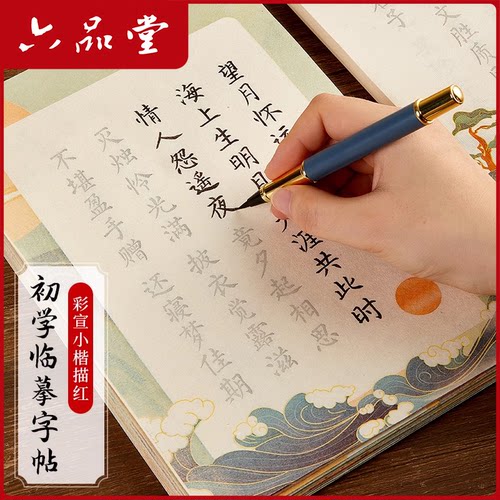 六品堂
望月怀远
海上生明月天涯共此时
情人怨遥夜竟夕起相思
灭烛怜光满披衣觉露滋
不堪盈手赠还寝梦佳期
子
文胜质
彩宣小楷描红
初学临摹字帖